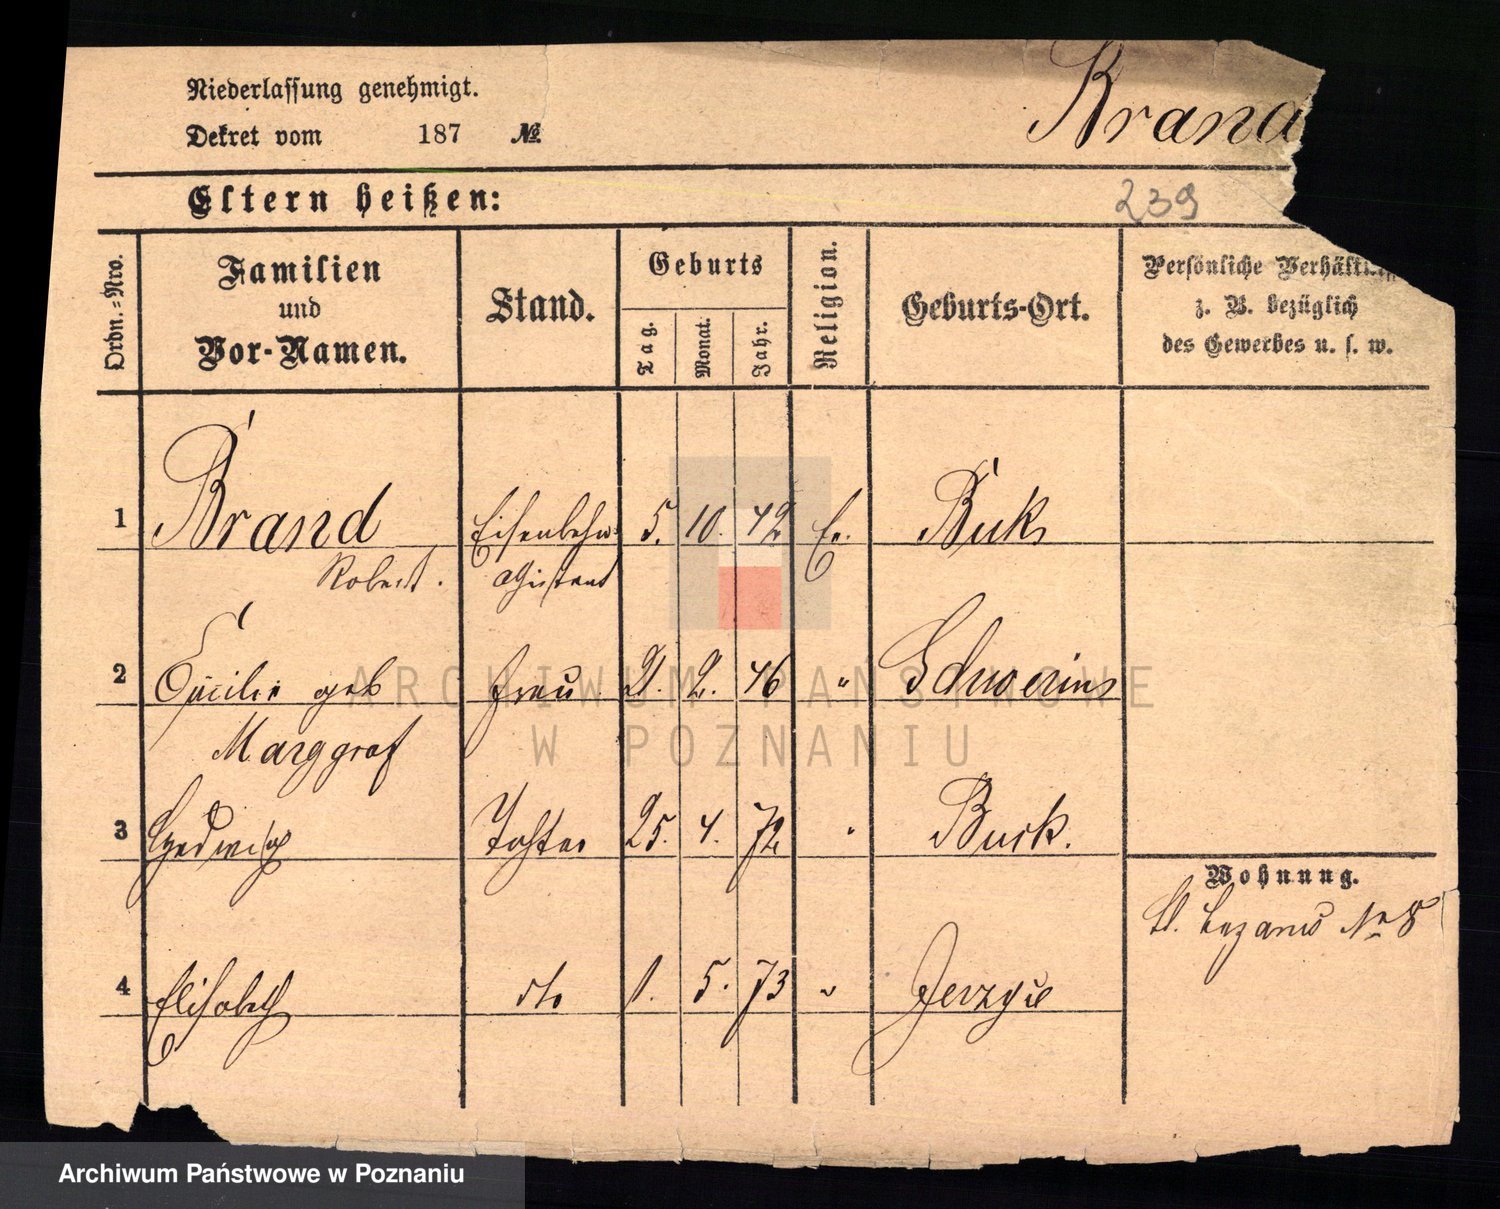 Niederlassung genehmigt.
Dekret vom 187 №
Brand
Eltern heißen:
239
Ordn.=Nro.
Familien
und
Vor-Namen.
Stand.
Geburts
Tag.
Monat.
Jahr.
Religion.
Geburts-Ort.
Persönliche Verhältn
z. B. bezüglich
des Gewerbes u. s. w.
1 Brand Eisenbahn 5. 10. 42 Ev. Buk
Robert. Assistent
2 Cäcilie geb Frau 21. 2. 46 " Schwerin
Marggraf
3 Hedwig Tochter 25. 4. 72 " Buck.
Wohnung.
St. Lazarus No 8
4 Elisabeth dto 1. 5. 73 "
ARCHIWUM PAŃSTWOWE
W POZNANIU
Archiwum Państwowe w Poznaniu